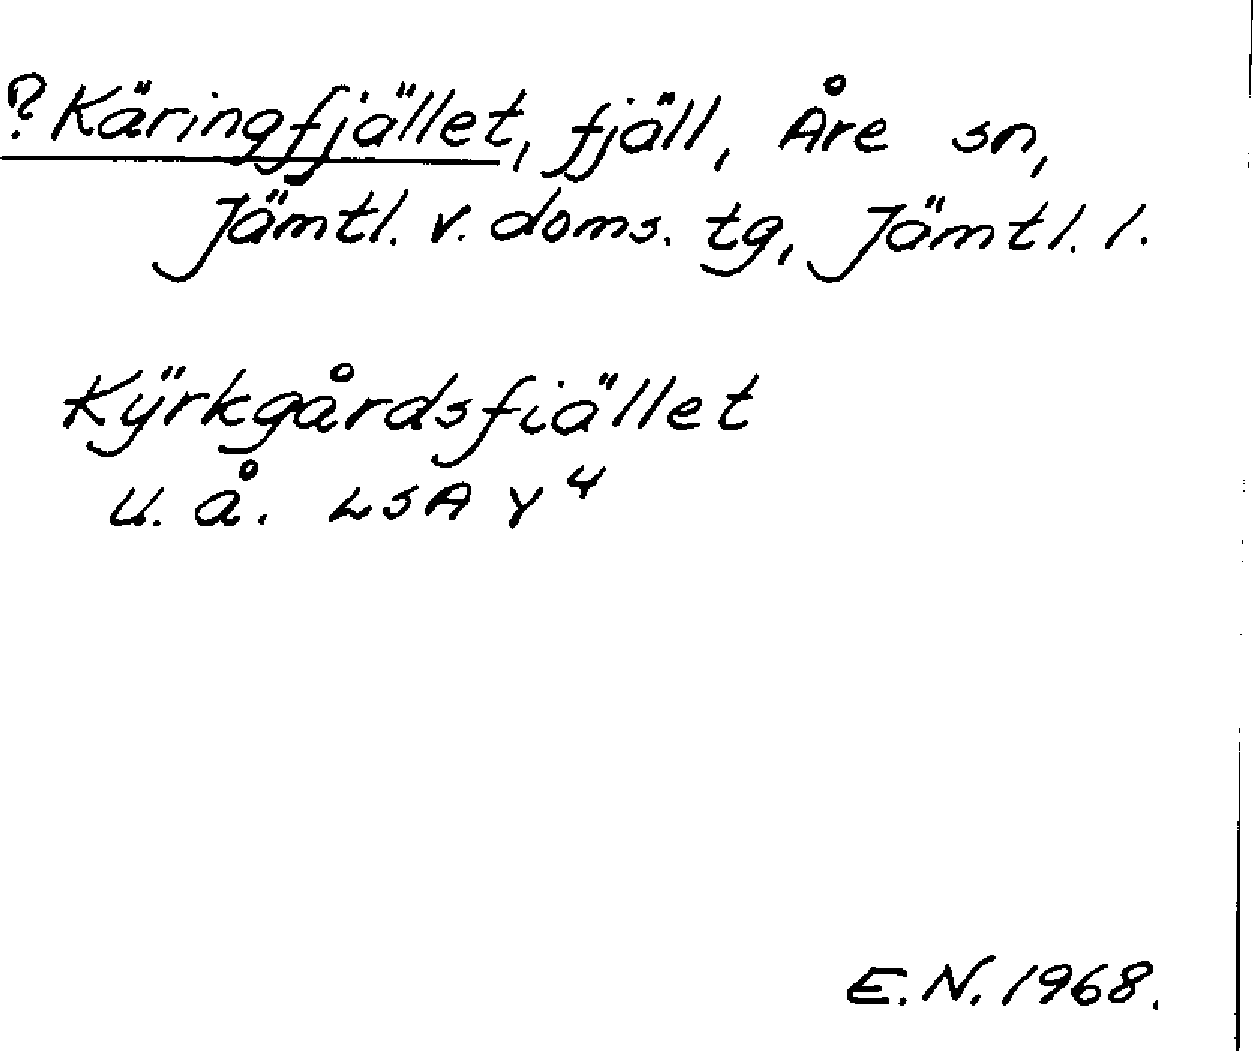 ? Käringfjället, fjäll, Åre sn,
Jämtl. v. doms. tg, Jämtl. l.
Kÿrkgårdsfiället
u. å. LSA Y4
E. N. 1968.